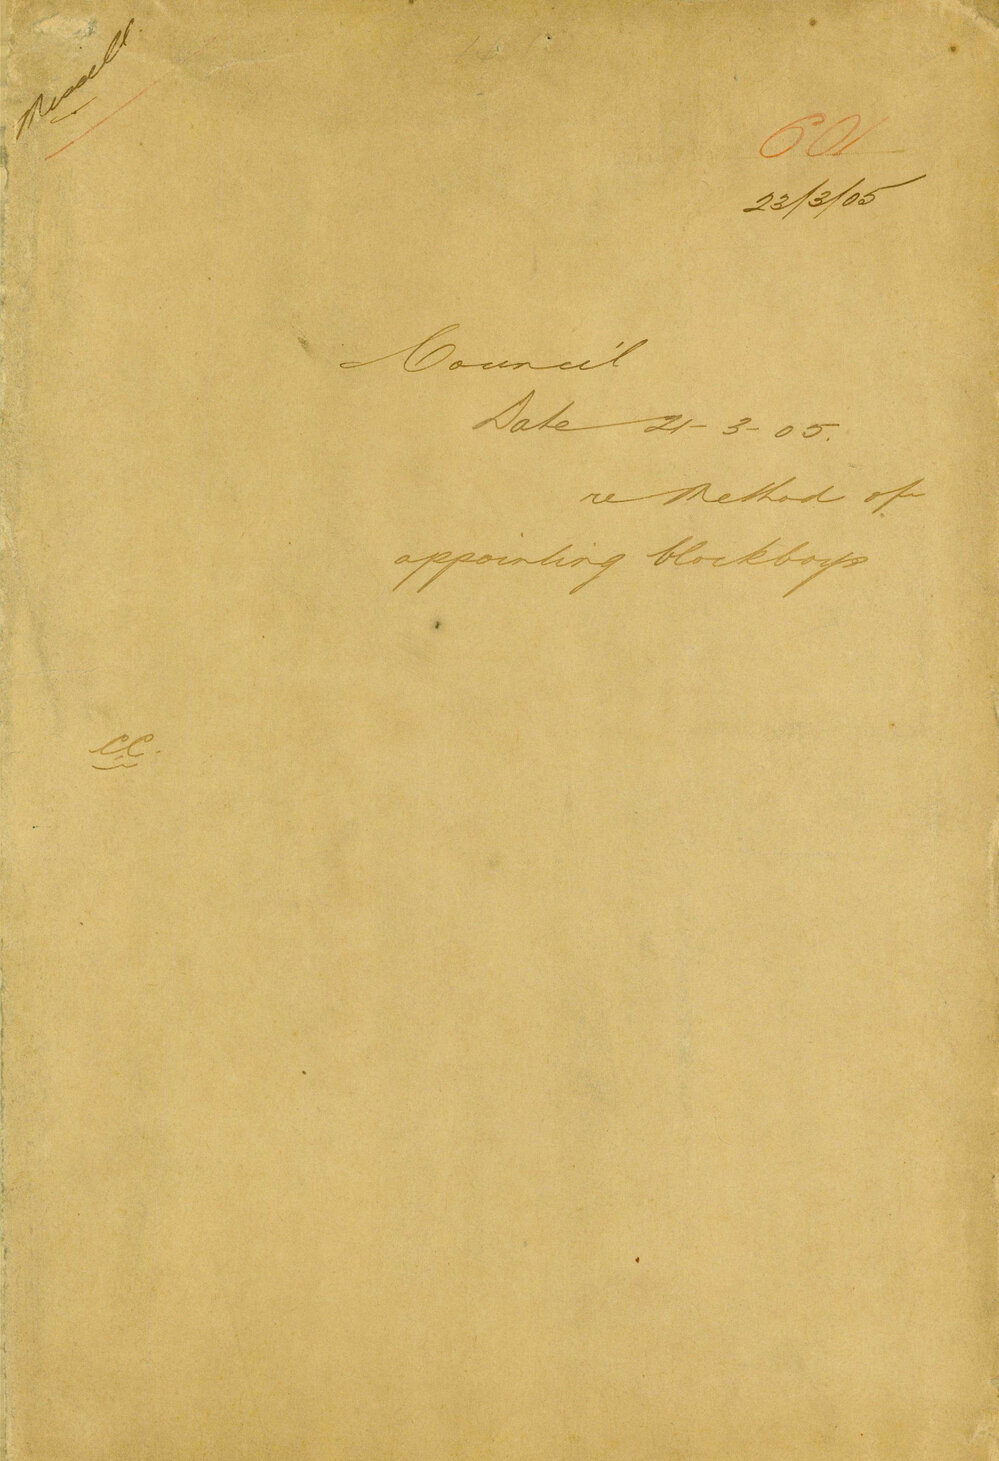 23/3/05
Council
Date 21-3-05.
re Method of
appointing blockboys
CC.